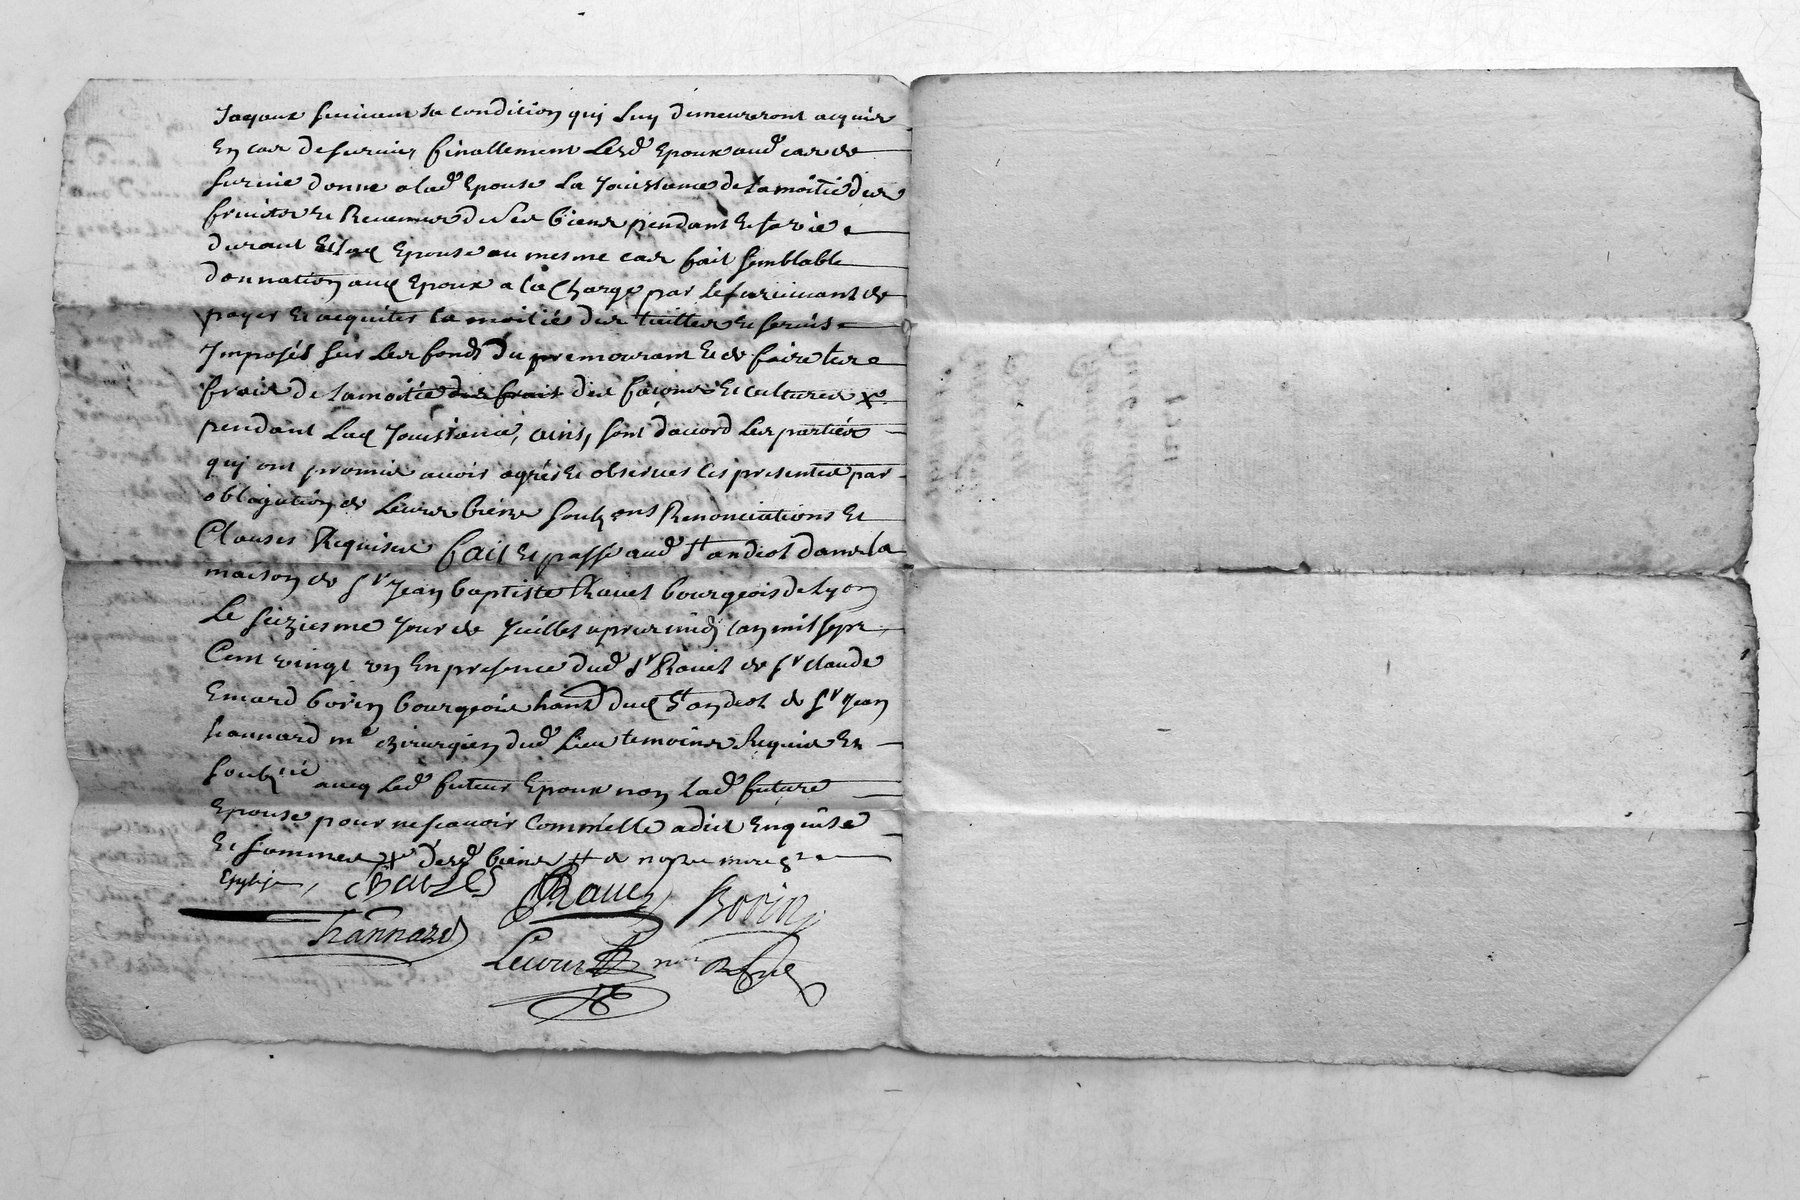 Joyaux suivant sa condition quj luy demeureront acquis
En cas de survie, finallement Lesd Epoux aud cas de
survie donne a lad Epouse La Jouissance de la moitié des
fruicts Et Revenus de ses biens pendant Et sa vie
durant Et lad Epouse au mesme cas fait semblable
donnation aud Epoux a la Charge par le survivant de
payer Et acquiter la moitié des tailles Et servis
Imposés sur Les fonds du premourant Et de faire les
frais de la moitié des frais des façons Et cultures x
pendant Lad Jouissance, ains, sont d'acord Les parties
quj ont promis avoir agrés Et observer Ces presentes par
obligation de Leurs biens soubzons Renonciations Et
Clauses Requises fait Et passé aud St andeol dans la
maison de Sr Jean baptiste Ravet bourgeois de Lyon
Le seiziesme Jour de Juillet apres midj l'an mil sept
Cent vingt un En presence dud Sr Ravet de Sr claude
Emard bovin bourgeois hant dud St andeol de Sr Jean
hannard me chirurgien dud Lieu temoins Requis Et
soubzné avecq Led futeur Epoux non Lad future
Epouse pour ne scavoir Comm'elle a dict Enquise
Et sommee x desd biens
Ravet Bovin
hannard